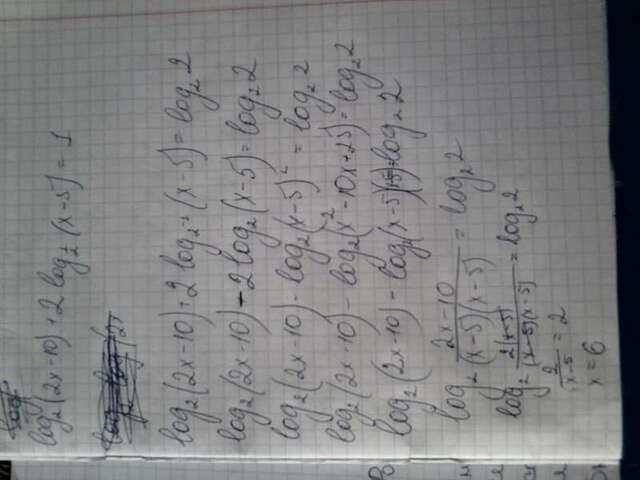 log₂(2x-10)+2 log_½(x-5)=1
log₂(2x-10)+2 log₂⁻¹(x-5)=log₂2
log₂(2x-10)-2 log₂(x-5)=log₂2
log₂(2x-10)-log₂(x-5)²=log₂2
log₂(2x-10)-log₂(x²-10x+25)=log₂2
log₂(2x-10)-log₂(x-5)(x-5)=log₂2
log₂ (2x-10)/((x-5)(x-5)) = log₂2
log₂ (2(x-5))/((x-5)(x-5)) = log₂2
2/(x-5) = 2
x=6